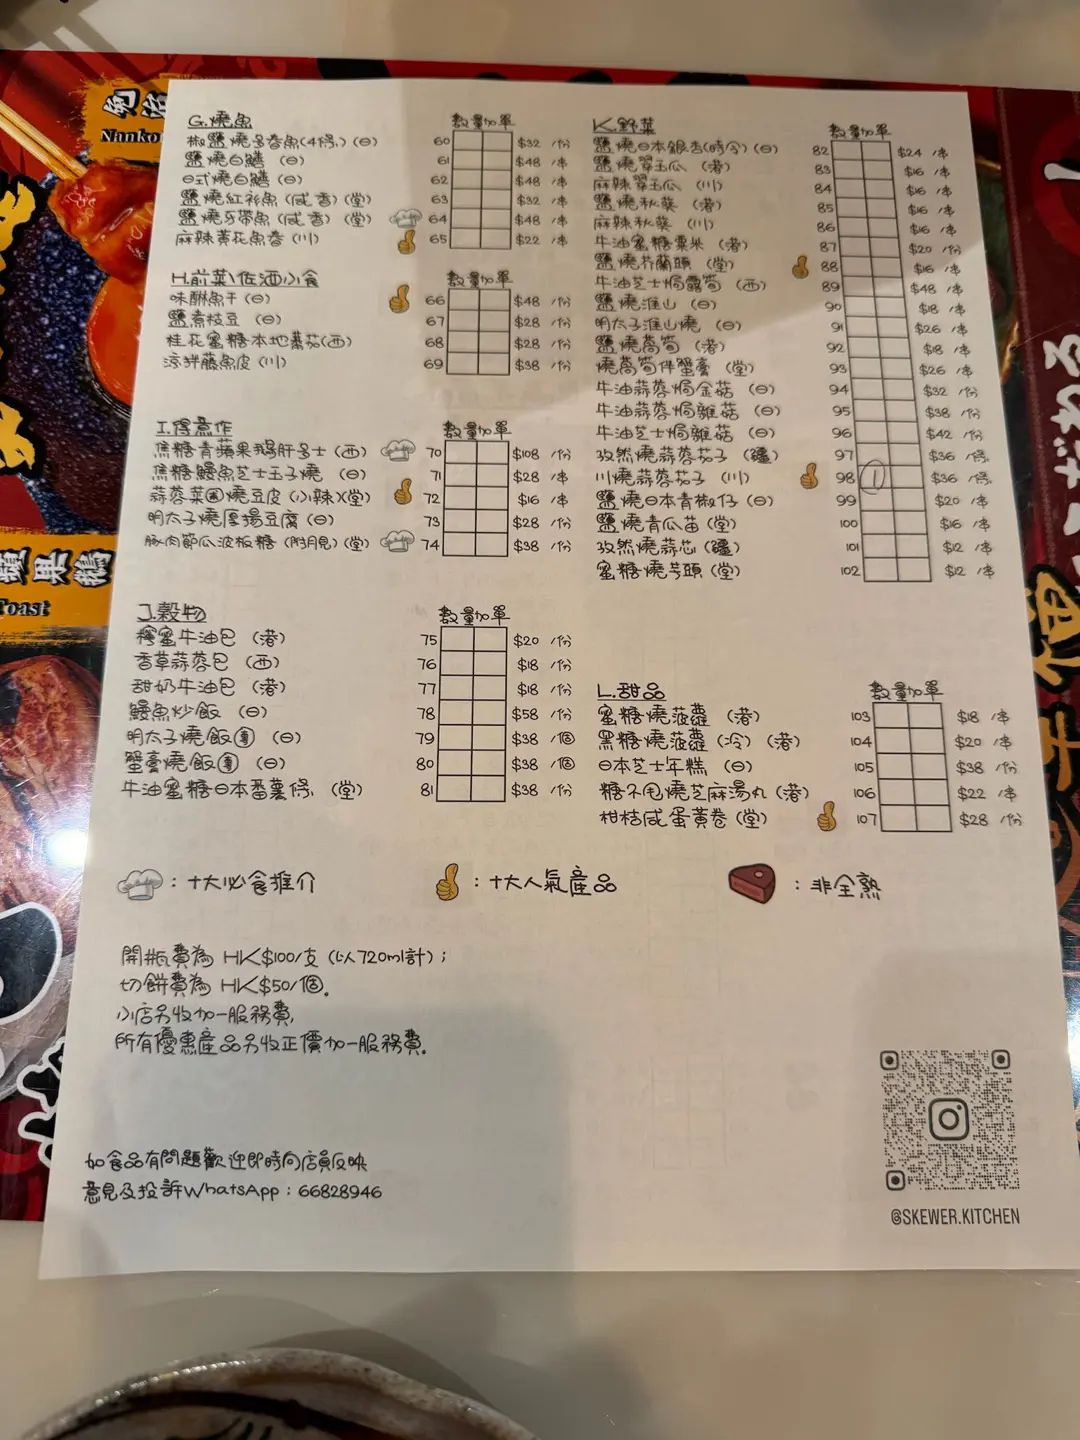 G.燒魚 數量 加單
椒鹽燒多春魚(4條)(日) 60 $32 /份
鹽燒白鱔 (日) 61 $48 /串
日式燒白鱔 (日) 62 $48 /串
鹽燒紅衫魚 (咸香) (堂) 63 $32 /串
鹽燒牙帶魚 (咸香) (堂) 64 $48 /串
麻辣黃花魚春 (川) 65 $22 /串
H.前菜\佐酒小食 數量 加單
味醂魚干 (日) 66 $48 /份
鹽煮枝豆 (日) 67 $28 /份
桂花蜜糖本地蕃茄(西) 68 $28 /份
涼拌藤魚皮 (川) 69 $38 /份
I.得意作 數量 加單
焦糖青蘋果鵝肝多士 (西) 70 $108 /份
焦糖鰻魚芝士玉子燒 (日) 71 $28 /串
蒜蓉菜圃燒豆皮 (小辣)(堂) 72 $16 /串
明太子燒厚揚豆腐 (日) 73 $28 /份
豚肉節瓜波板糖 (附月見) (堂) 74 $38 /份
J.穀物 數量 加單
檸蜜牛油包 (港) 75 $20 /份
香草蒜蓉包 (西) 76 $18 /份
甜奶牛油包 (港) 77 $18 /份
鰻魚炒飯 (日) 78 $58 /份
明太子燒飯團 (日) 79 $38 /個
蟹膏燒飯團 (日) 80 $38 /個
牛油蜜糖日本番薯條 (堂) 81 $38 /份
K.野菜 數量 加單
鹽燒日本銀杏(時令) (日) 82 $24 /串
鹽燒翠玉瓜 (港) 83 $16 /串
麻辣翠玉瓜 (川) 84 $16 /串
鹽燒秋葵 (港) 85 $16 /串
麻辣秋葵 (川) 86 $16 /串
牛油蜜糖粟米 (港) 87 $20 /份
鹽燒芥蘭頭 (堂) 88 $16 /串
牛油芝士焗露筍 (西) 89 $48 /串
鹽燒淮山 (日) 90 $18 /串
明太子淮山燒 (日) 91 $26 /串
鹽燒萵筍 (港) 92 $18 /串
燒萵筍伴蟹膏 (堂) 93 $26 /串
牛油蒜蓉焗金菇 (日) 94 $32 /份
牛油蒜蓉焗雜菇 (日) 95 $38 /份
牛油芝士焗雜菇 (日) 96 $42 /份
孜然燒蒜蓉茄子 (疆) 97 $36 /條
川燒蒜蓉茄子 (川) 98 1 $36 /條
鹽燒日本青椒仔 (日) 99 $20 /串
鹽燒青瓜苗 (堂) 100 $16 /串
孜然燒蒜芯 (疆) 101 $12 /串
蜜糖燒芋頭 (堂) 102 $12 /串
L.甜品 數量 加單
蜜糖燒菠蘿 (港) 103 $18 /串
黑糖燒菠蘿 (冷) (港) 104 $20 /串
日本芝士年糕 (日) 105 $38 /份
糖不甩燒芝麻湯丸 (港) 106 $22 /串
柑桔咸蛋黃卷 (堂) 107 $28 /份
：十大必食推介 ：十大人氣產品 ：非全熟
開瓶費為 HK$100/支 (以720ml計)；
切餅費為 HK$50/個。
小店另收加一服務費,
所有優惠產品另收正價加一服務費。
如食品有問題歡迎即時向店員反映
意見及投訴WhatsApp：66828946
@SKEWER.KITCHEN
Nanko
蘋果鵝
Toast